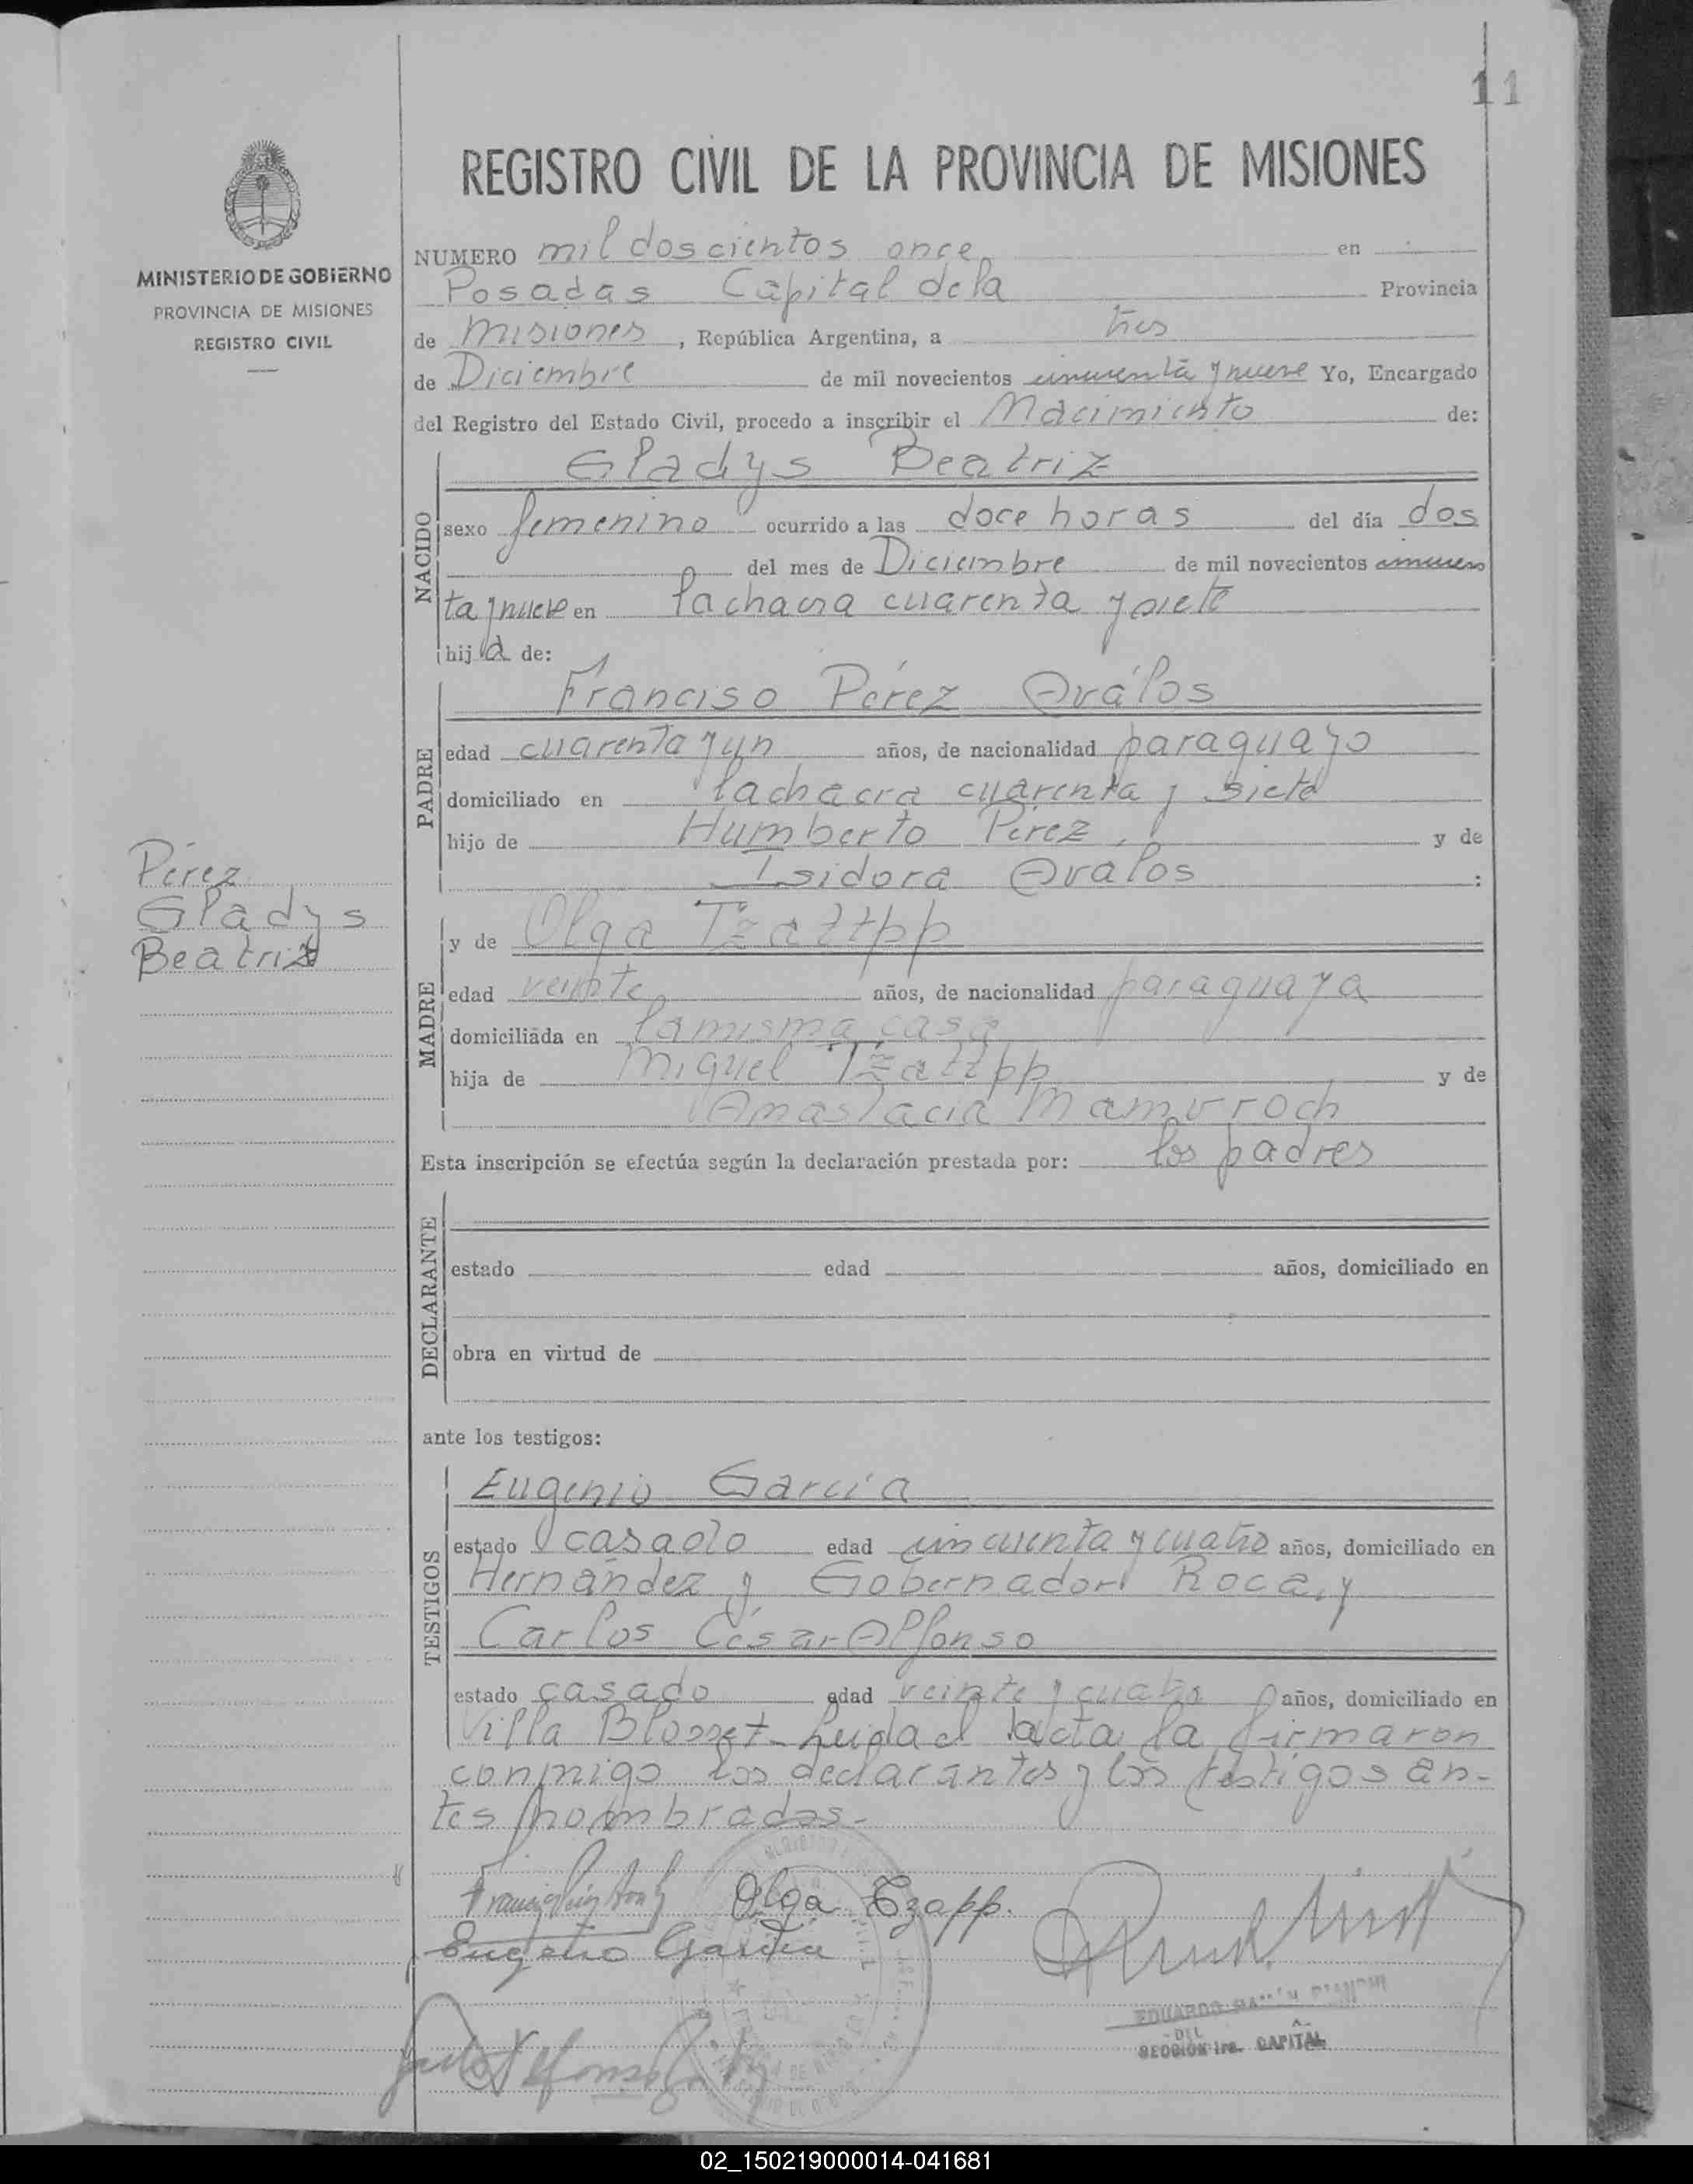 11
REGISTRO CIVIL DE LA PROVINCIA DE MISIONES
MINISTERIO DE GOBIERNO
PROVINCIA DE MISIONES
REGISTRO CIVIL
NUMERO mil doscientos once en
Posadas Capital de la Provincia
de Misiones, República Argentina, a tres
de Diciembre de mil novecientos cincuenta y nueve Yo, Encargado
del Registro del Estado Civil, procedo a inscribir el Nacimiento de:
NACIDO
Gladys Beatriz
sexo femenino ocurrido a las doce horas del día dos
del mes de Diciembre de mil novecientos cincuen
ta y nueve en la chacra cuarenta y siete
hija de:
PADRE
Franciso Pérez Oválos
edad cuarenta y un años, de nacionalidad paraguayo
domiciliado en la chacra cuarenta y siete
hijo de Humberto Pérez, y de
Isidora Ovalos :
Pérez
Gladys
Beatriz
MADRE
y de Olga
edad veinte años, de nacionalidad paraguaya
domiciliada en la misma casa
hija de Miguel y de
Anastacia
Esta inscripción se efectúa según la declaración prestada por: los padres
DECLARANTE
estado edad años, domiciliado en
obra en virtud de
ante los testigos:
TESTIGOS
Eugenio García
estado casado edad cincuenta y cuatro años, domiciliado en
Hernández y Gobernador Roca, y
Carlos César Alfonso
estado casado edad veinte y cuatro años, domiciliado en
Villa Blosset - Leida el acta la firmaron
conmigo los declarantes y los testigos an-
tes nombrados.-
Olga Tzapp.
Eugenio Garcia
EDUARDO
DEL
SECCIÓN 1ra. CAPITAL
02_150219000014-041681